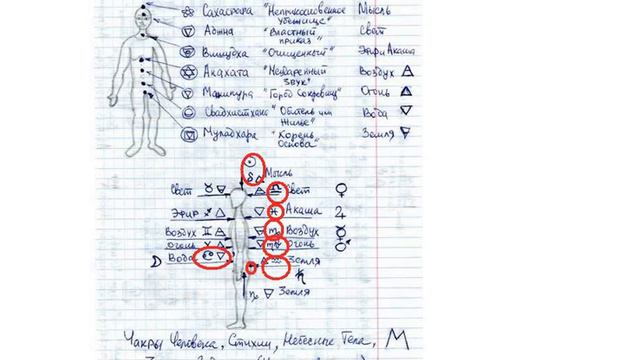 Сахасрара "Неприкосновенное убежище" Мысль
Аджна "Властный приказ" Свет
Вишудха "Очищенный" Эфир Акаша
Анахата "Неударенный звук" Воздух
Манипура "Город Сокровищ" Огонь
Свадхистхана "Обитель или Жильё" Вода
Муладхара "Корень, Основа" Земля
Мысль
Свет ♉ ♎ Свет ♀
Эфир ♐ ♓ Акаша ♃
Воздух ♊ ♍ Воздух ☿
Огонь ♈ ♏ Огонь ♂
Вода ♋ ♒ Земля
♑ Земля
Чакры Человека, Стихии, Небесные Тела,